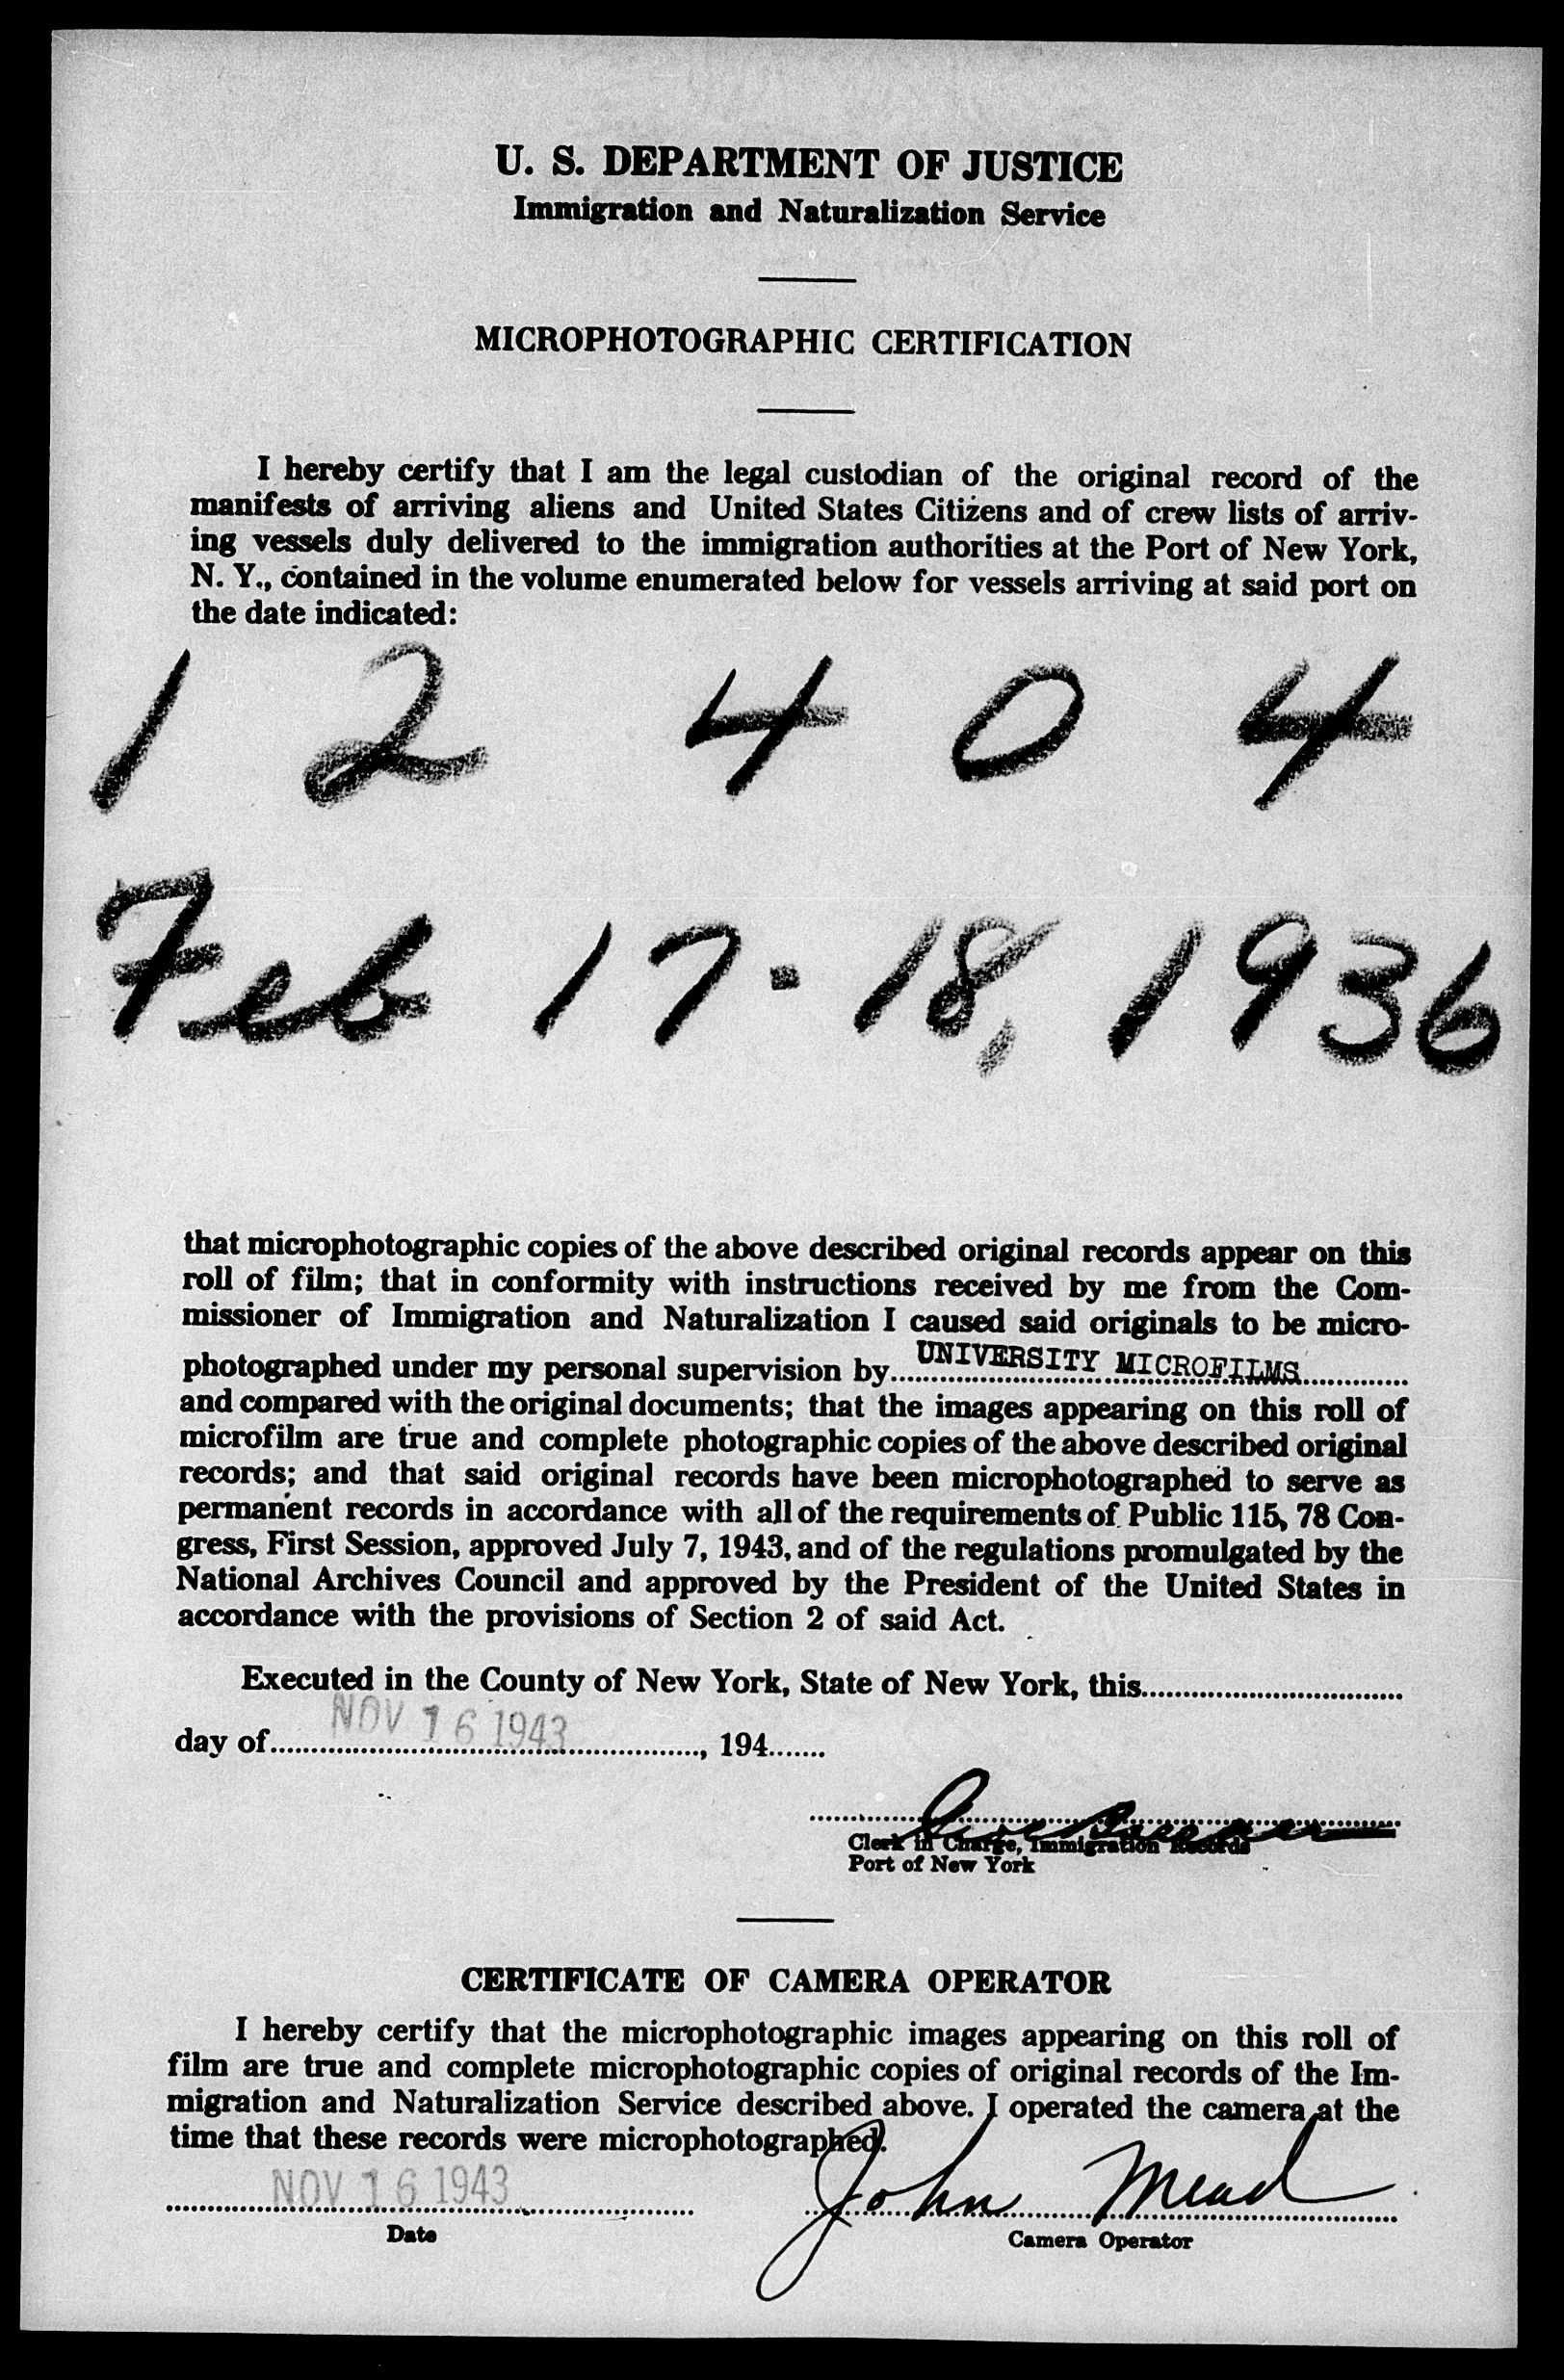 U. S. DEPARTMENT OF JUSTICE
Immigration and Naturalization Service
MICROPHOTOGRAPHIC CERTIFICATION
I hereby certify that I am the legal custodian of the original record of the
manifests of arriving aliens and United States Citizens and of crew lists of arriv-
ing vessels duly delivered to the immigration authorities at the Port of New York,
N. Y., contained in the volume enumerated below for vessels arriving at said port on
the date indicated:
1 2 4 0 4
Feb 17-18, 1936
that microphotographic copies of the above described original records appear on this
roll of film; that in conformity with instructions received by me from the Com-
missioner of Immigration and Naturalization I caused said originals to be micro-
photographed under my personal supervision by UNIVERSITY MICROFILMS
and compared with the original documents; that the images appearing on this roll of
microfilm are true and complete photographic copies of the above described original
records; and that said original records have been microphotographed to serve as
permanent records in accordance with all of the requirements of Public 115, 78 Con-
gress, First Session, approved July 7, 1943, and of the regulations promulgated by the
National Archives Council and approved by the President of the United States in
accordance with the provisions of Section 2 of said Act.
Executed in the County of New York, State of New York, this
day of NOV 16 1943, 194
Clerk in Charge, Immigration Records
Port of New York
CERTIFICATE OF CAMERA OPERATOR
I hereby certify that the microphotographic images appearing on this roll of
film are true and complete microphotographic copies of original records of the Im-
migration and Naturalization Service described above. I operated the camera at the
time that these records were microphotographed.
NOV 16 1943 John Mead
Date Camera Operator